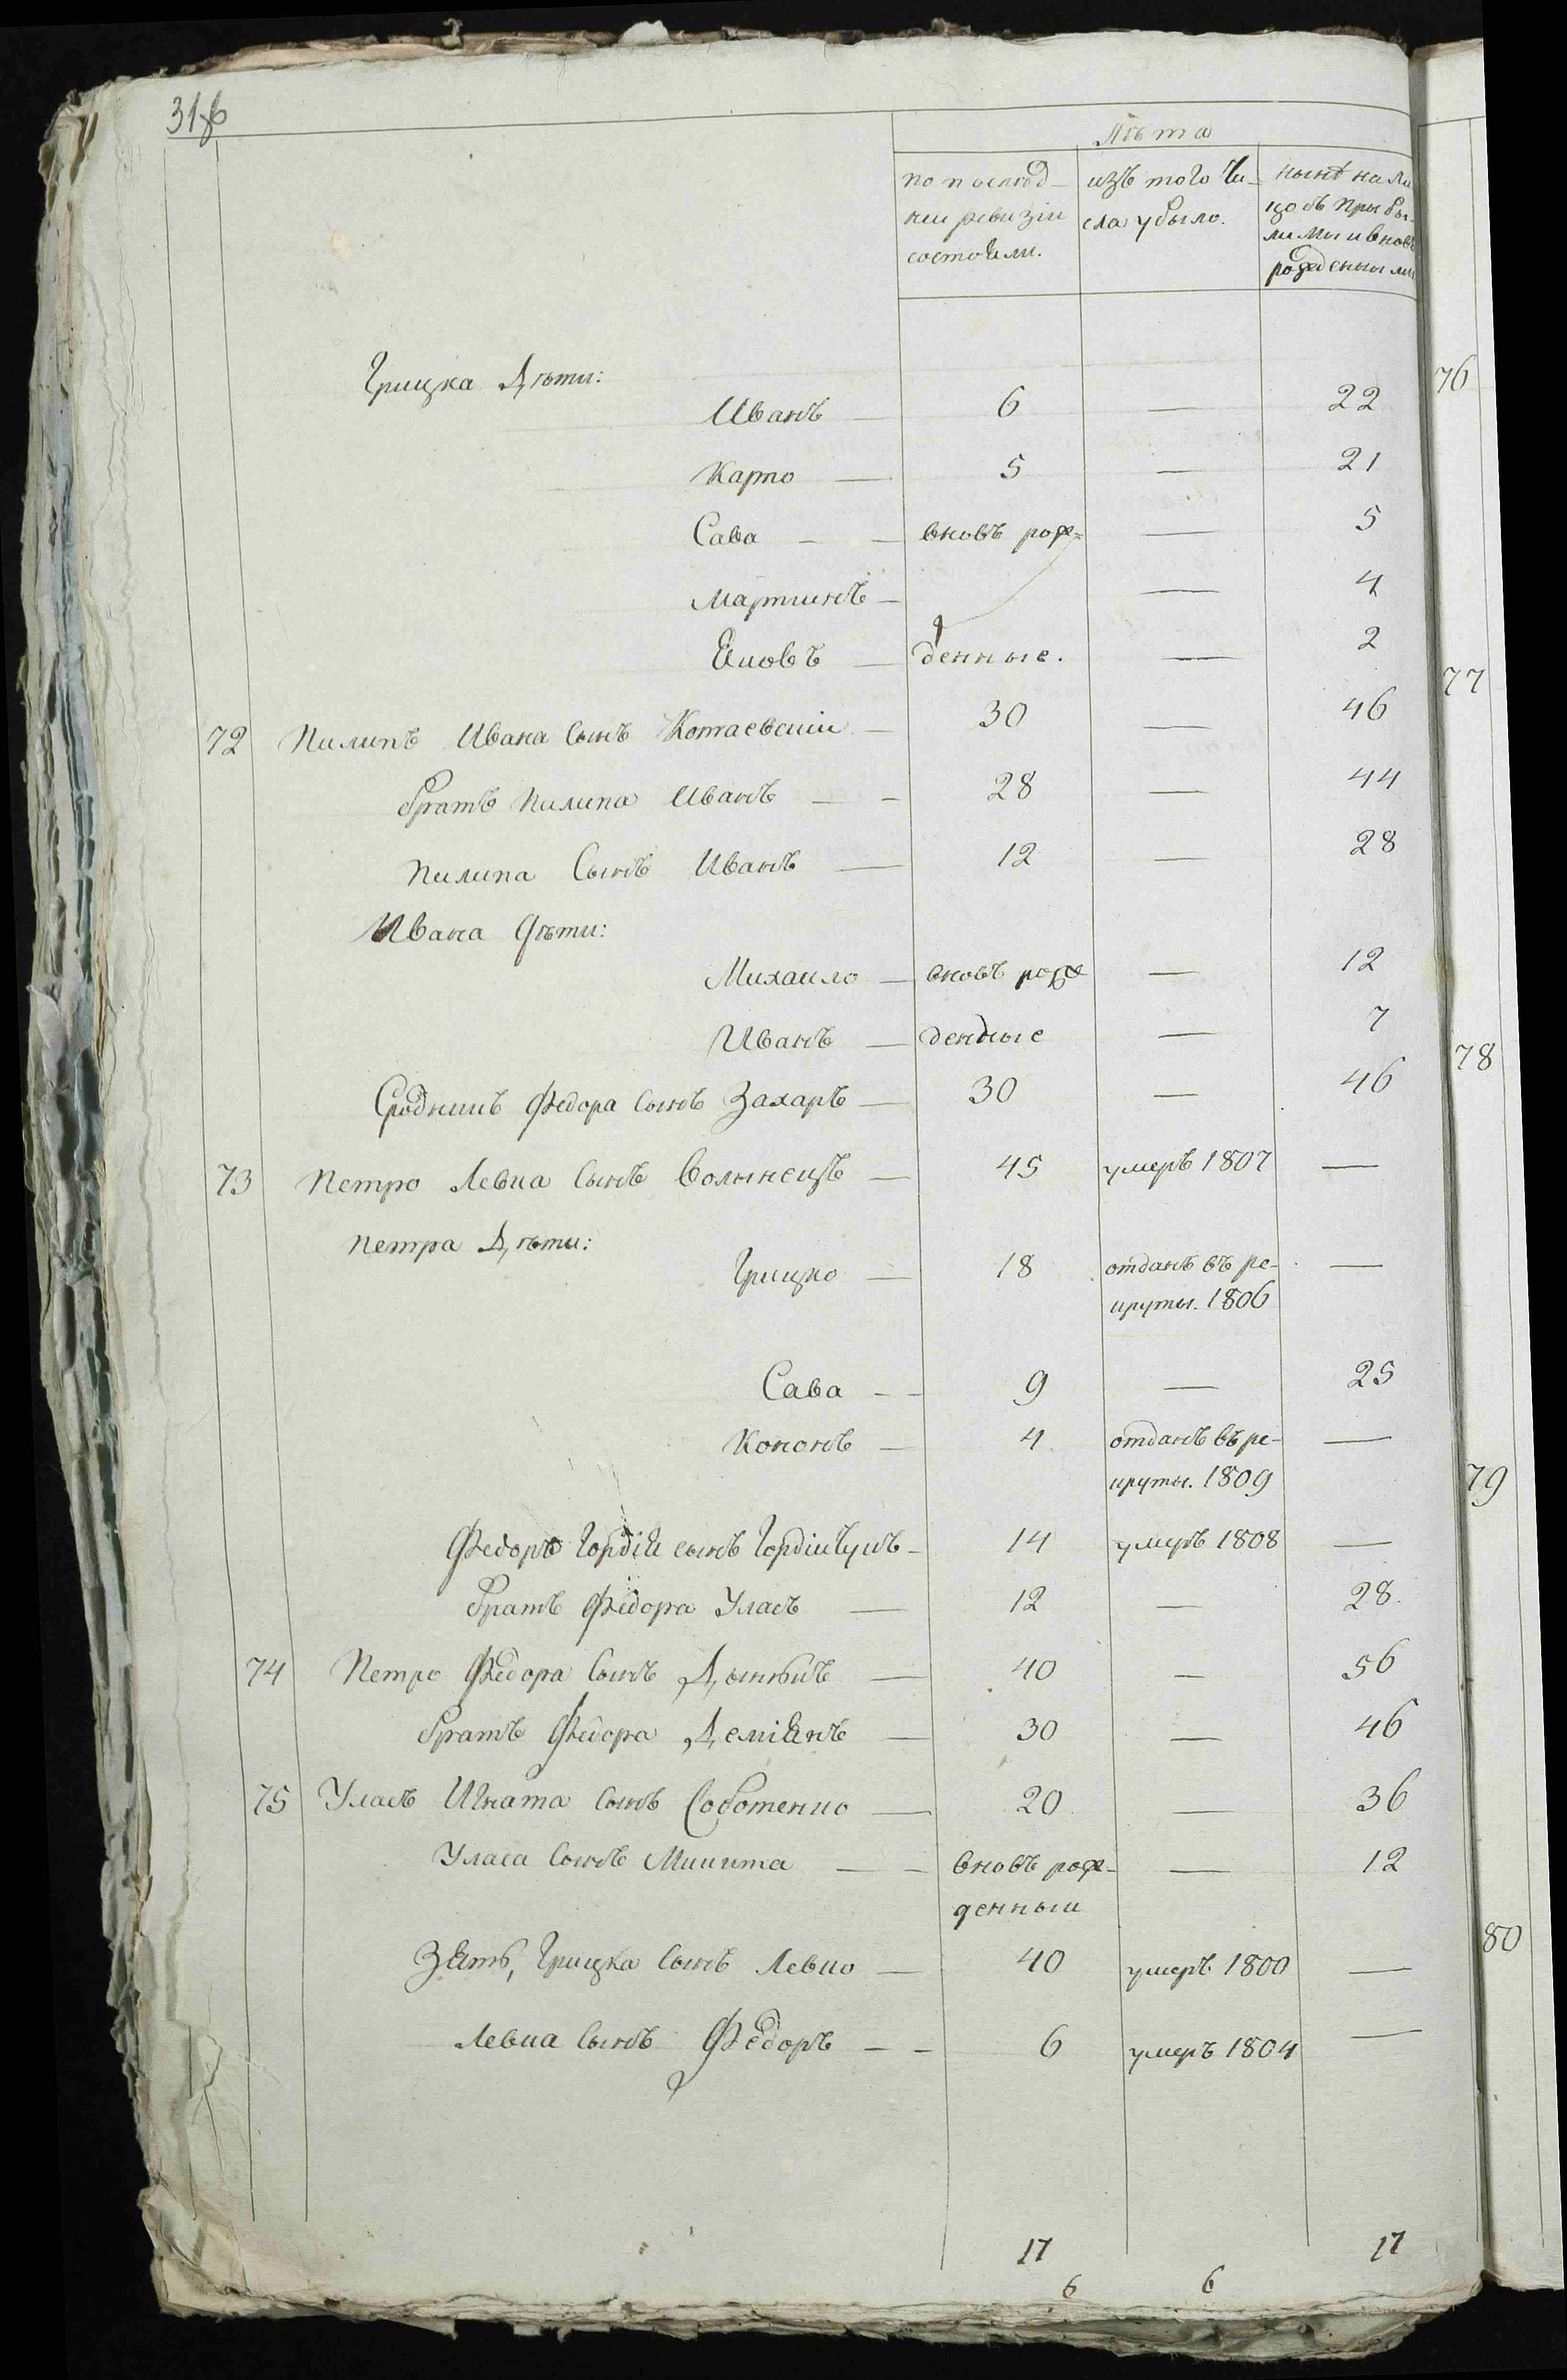 Лѣта
по послѣд- изъ того чи- нынѣ на ли
ней ревизіи сла убыло. цо съ прыбы-
состояли. лимы и вновъ
рожденными
Грицка Дѣти:
Иванъ — 6 — 22
Карпо — 5 — 21
Сава — — вновъ рож= — 5
Мартинъ — — 4
Яковъ — денные. — 2
72 Пилипъ Ивана Сынъ Котаевскій — 30 — 46
братъ Пилипа Иванъ — — 28 — 44
Пилипа Сынъ Иванъ — 12 — 28
Ивана дѣти:
Михайло — вновъ рож — 12
Иванъ — денные — 7
Сродникъ Федора сынъ Захаръ — 30 — 46
73 Петро Левка Сынъ Волынецъ — 45 умеръ 1807 —
Петра Дѣти:
Грицко — 18 отданъ въ ре- —
круты. 1806
Сава — — 9 — 25
Кононъ — 4 отданъ въ ре- —
круты. 1809
Федоръ Гордія сынъ Гордійчукъ — 14 умеръ 1808 —
братъ Федора Уласъ — 12 — 28.
74 Петро Федора Сынъ — 40 — 56
братъ Федора Деміянъ — 30 — 46
75 Уласъ Игната сынъ Соботенко — 20 — 36
Уласа сынъ Микита — — вновъ рож- — 12
денный
Зять, Грицка Сынъ Левко — 40 умеръ 1800 —
Левка Сынъ Федоръ — — 6 умеръ 1804 —
17 17
6 6
76
77
78
79
80